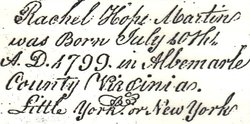 Rachel Hope Martin
was Born July 20th.
A.D. 1799. in Albemarle
County Virginia.
Little York. or New York